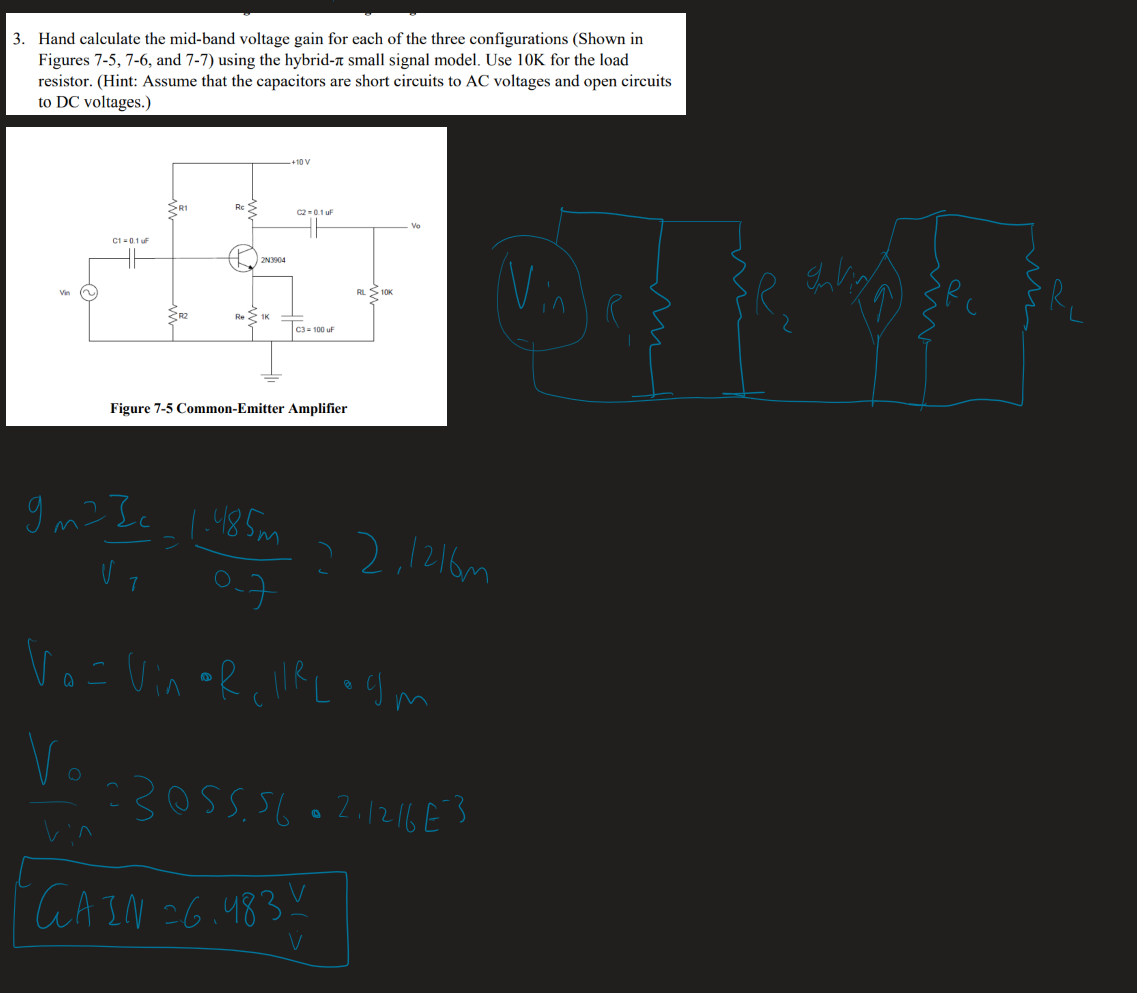 3. Hand calculate the mid-band voltage gain for each of the three configurations (Shown in
Figures 7-5, 7-6, and 7-7) using the hybrid-π small signal model. Use 10K for the load
resistor. (Hint: Assume that the capacitors are short circuits to AC voltages and open circuits
to DC voltages.)
+10 V
R1
Rc
C2 = 0.1 uF
Vo
C1 = 0.1 uF
2N3904
Vin
RL
10K
R2
Re
1K
C3 = 100 uF
Figure 7-5 Common-Emitter Amplifier
Vin
R1
R2
gmVin
Rc
RL
gm = Ic/VT = 1.485m/0.7 = 2.1216m
Vo = Vin • Rc||RL • gm
Vo/Vin = 3055.56 • 2.1216E-3
GAIN = 6.483 V/V